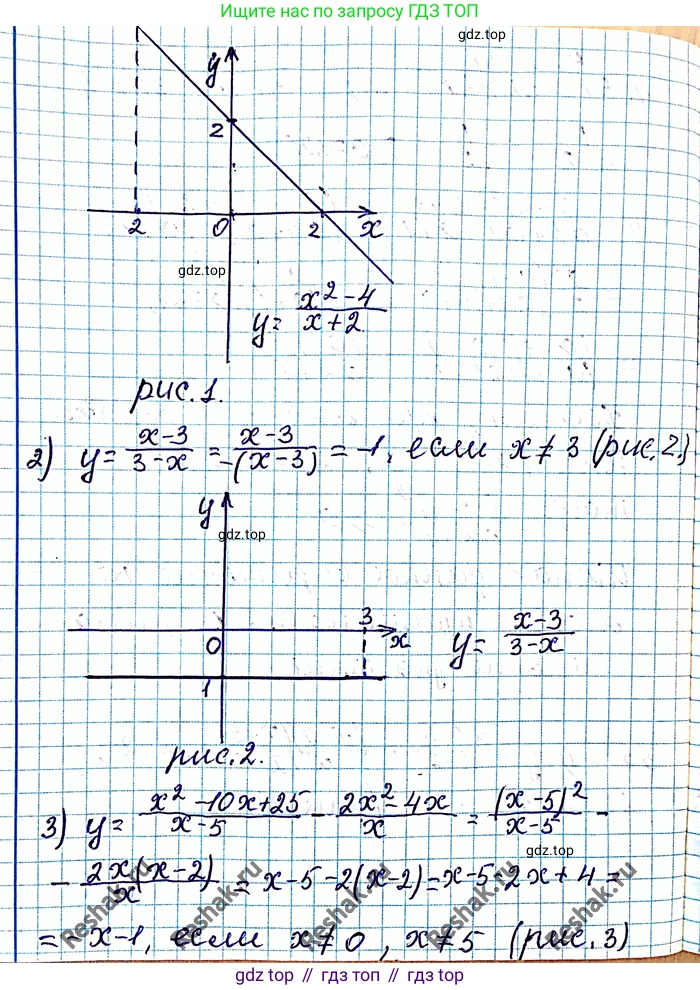 Ищите нас по запросу ГДЗ ТОП
gdz.top
y
2
2 0 2 x
gdz.top
y = x² - 4 / x + 2
рис. 1.
2) y = x - 3 / 3 - x = x - 3 / -(x - 3) = -1, если x ≠ 3 (рис. 2.)
y
gdz.top
3
0 x
y = x - 3 / 3 - x
1
рис. 2.
3) y = x² - 10x + 25 / x - 5 - 2x² - 4x / x = (x - 5)² / x - 5 -
gdz.top
- 2x(x - 2) / x = x - 5 - 2(x - 2) = x - 5 - 2x + 4 =
= - x - 1, если x ≠ 0, x ≠ 5 (рис. 3)
Reshak.ru Reshak.ru Reshak.ru Reshak.ru Reshak.ru
gdz.top // гдз топ // gdz.top